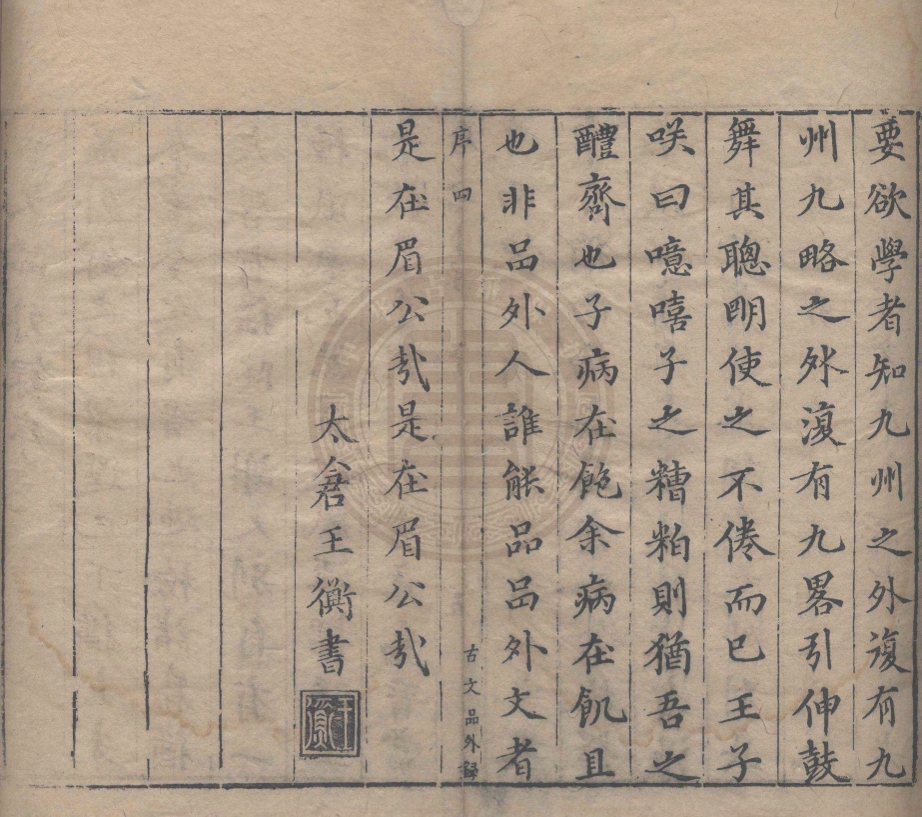 要欲學者知九州之外復有九
州九略之外澓有九畧引伸鼓
舞其聰明使之不倦而已王子
咲曰噫嘻子之糟粕則猶吾之
醴齊也子病在飽余病在飢且
也非品外人誰能品品外文者
序 四
古文品外錄
是在眉公㢤是在眉公㢤
太倉王衡書
王衡